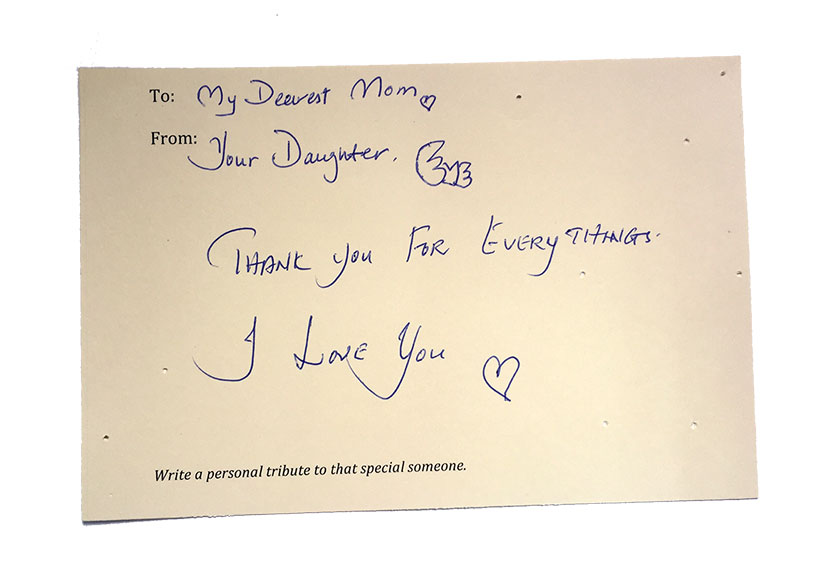 To: My Dearest Mom
From: Your Daughter.
THANK you FOR EVERYTHINGS.
I LOVE You
Write a personal tribute to that special someone.